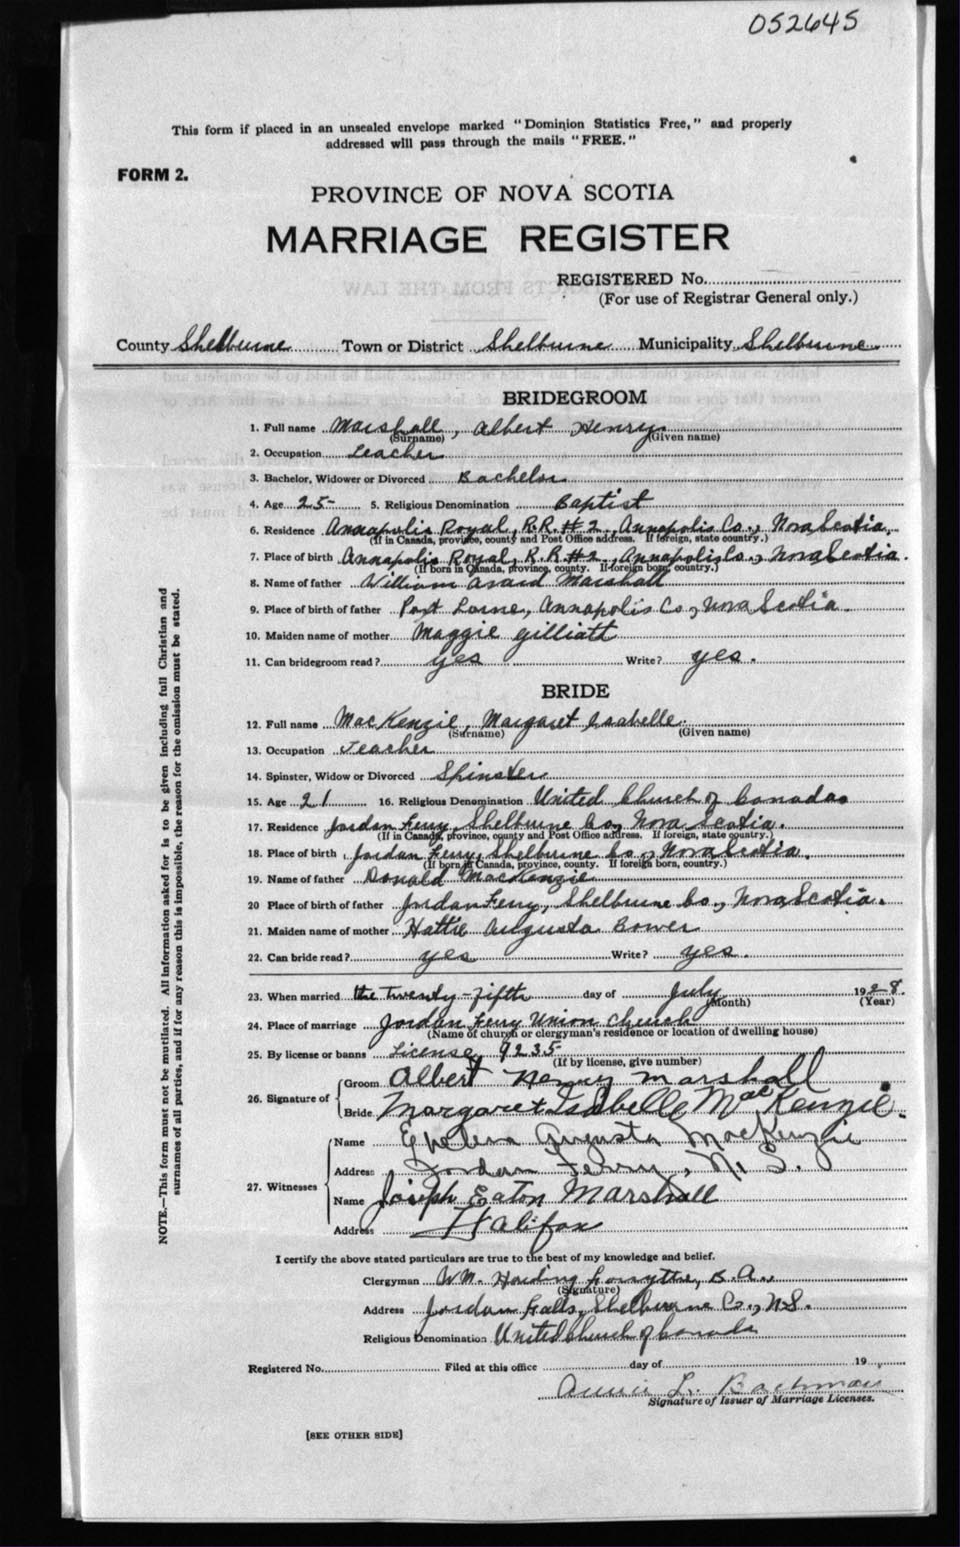 052645
This form if placed in an unsealed envelope marked "Dominion Statistics Free," and properly
addressed will pass through the mails "FREE."
FORM 2.
PROVINCE OF NOVA SCOTIA
MARRIAGE REGISTER
REGISTERED No.
(For use of Registrar General only.)
County Shelburne Town or District Shelburne Municipality Shelburne
BRIDEGROOM
1. Full name Marshall, Albert Henry
(Surname) (Given name)
2. Occupation Teacher
3. Bachelor, Widower or Divorced Bachelor
4. Age 25 5. Religious Denomination Baptist
6. Residence Annapolis Royal, R.R.#2, Annapolis Co., Nova Scotia.
(If in Canada, province, county and Post Office address. If foreign, state country.)
7. Place of birth Annapolis Royal, R.R.#2, Annapolis Co., Nova Scotia.
(If born in Canada, province, county. If foreign born, country.)
8. Name of father William Marshall
9. Place of birth of father Port Lorne, Annapolis Co., Nova Scotia.
10. Maiden name of mother Maggie Gilliatt
11. Can bridegroom read? yes Write? yes.
BRIDE
12. Full name MacKenzie, Margaret Isabelle.
(Surname) (Given name)
13. Occupation Teacher
14. Spinster, Widow or Divorced Spinster
15. Age 21 16. Religious Denomination United Church of Canada
17. Residence Jordan Ferry, Shelburne Co., Nova Scotia.
(If in Canada, province, county and Post Office address. If foreign, state country.)
18. Place of birth Jordan Ferry, Shelburne Co., Nova Scotia.
(If born in Canada, province, county. If foreign born, country.)
19. Name of father Donald MacKenzie
20 Place of father Jordan Ferry, Shelburne Co., Nova Scotia.
21. Maiden name of mother Hattie Augusta Bower
22. Can bride read? yes Write? yes.
23. When married the Twenty-fifth day of July 1928.
(Month) (Year)
24. Place of marriage Jordan Ferry Union Church
(Name of church or clergyman's residence or location of dwelling house)
25. By license or banns License, 9235
(If by license, give number)
26. Signature of Groom Albert Henry Marshall
Bride Margaret Isabelle MacKenzie.
27. Witnesses Name Augusta MacKenzie
Address Jordan Ferry, N.S.
Name Joseph Eaton Marshall
Address Halifax
I certify the above stated particulars are true to the best of my knowledge and belief.
Clergyman Wm. Harding Forsythe, B.A.
(Signature)
Address Jordan Falls, Shelburne Co., N.S.
Religious Denomination United Church of Canada
Registered No. Filed at this office day of 19
Annie L. Bachman
Signature of Issuer of Marriage Licenses.
[SEE OTHER SIDE]
NOTE.—This form must not be mutilated. All information asked for is to be given including full Christian and
surnames of all parties, and if for any reason this is impossible, the reason for the omission must be stated.